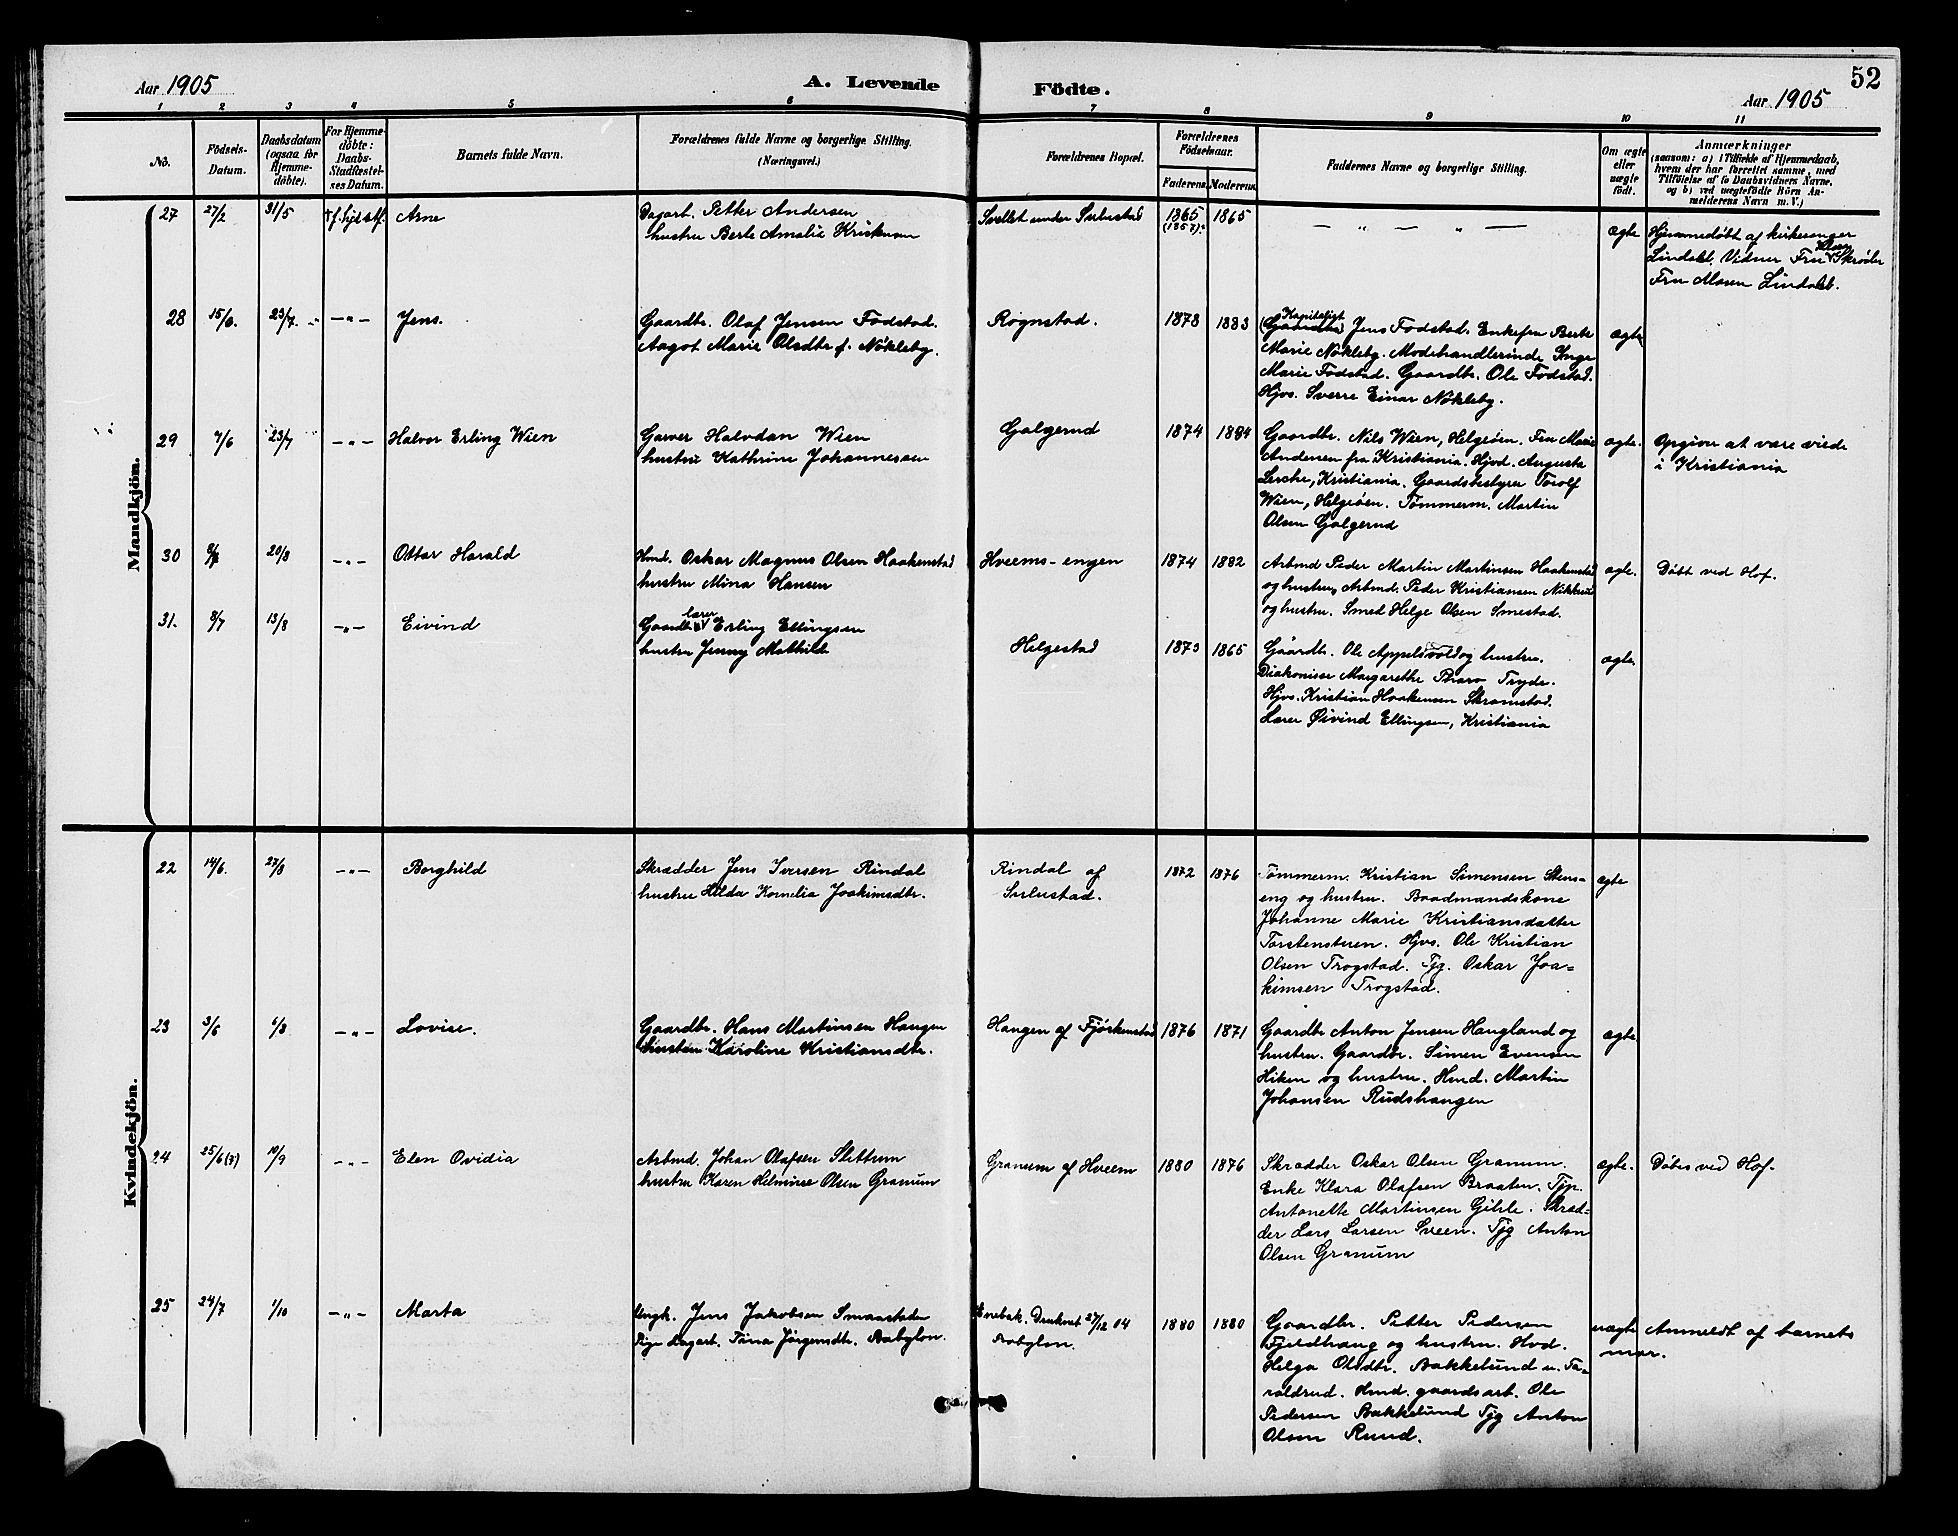 52
Aar 1905 A. Levende Födte. Aar 1905
1 2 3 4 5 6 7 8 9 10 11
No.
Födsels-
Datum.
Daabsdatum
(ogsaa for
Hjemme-
døbte).
For Hjemme-
döbte:
Daabs-
Stadfæstel-
ses Datum.
Barnets fulde Navn.
Forældrenes fulde Navne og borgerlige Stilling.
(Næringsvei.)
Forældrenes Bopæl.
Forældrenes
Födselsaar.
Faderens. Moderens.
Faddernes Navne og borgerlige Stilling.
Om ægte
eller
uægte
födt.
Anmærkninger
(saasom: a) i Tilfælde af Hjemmedaab,
hvem der har forrettet samme, med
Tilföielse af to Daabsvidners Navne,
og b) ved uægtefödte Börn An-
melderens Navn m. V.)
Mandkjön.
27 27/2 31/5 Arne
Dagarb. Petter Andersen
hustru Berte Amalie
under
1865 1865
(1857)
ægte
Hjemmedøbt af kirkesanger
Lindalst. Vidner Fru
Fru Maren Lindalst.
28 15/6. 23/7. — " — Jens.
Gaardbr. Olaf Jensen Fodstad.
Aagot Marie Olsdtr f. Nökleby.
Rognstad.
1878 1883
Kapiteligt
(Gaardbr) Jens Fodstad. Enkefru Berte
Marie Nökleby. Modehandlerinde Inga
Marie Fodstad. Gaardbr. Ole Fodstad.
Hjvs. Sverre Einar Nökleby.
ægte
29 7/6 23/7 — " — Halvor Erling Wien
Garver Halvdan Wien
hustru Kathrine Johannessen
Galgerud
1874 1884
Gaardbr. Nils Wien, Helgeøen. Fru Marie
Andersen fra Kristiania. Hjvd. Augusta
Lerche, Kristiania. Gaardsbestyrer Torolf
Wien, Helgeøen. Tømmerm. Martin
Olsen Galgerud
ægte.
Opgiver at være viede
i Kristiania
30 20/8 — " — Ottar Harald
Hmd. Oskar Magnus Olsen Haakenstad
hustru Mina Hansen
Hveems-engen
1874 1882
Arbmd Peder Martin Martinsen Haakenstad
og hustru, Arbmd. Peder Kristiansen
og hustru. Smed Helge Olsen Smestad.
ægte.
Döbt ved Hof.
31. 8/7 13/8 — " — Eivind
lærer
Gaardbr Erling Ellingsen
hustru Jenny Mathilde
Helgestad
1873 1865
Gaardbr. Ole Appelsvold og hustru.
Diakonisse Margarethe Tryde.
Hjvs. Kristian Haakensen Skramstad.
Lærer Øivind Ellingsen, Kristiania
ægte.
Kvindekjön.
22 14/6. 27/8 — " — Borghild
Skrædder Jens Iversen Rindal
hustru Hilda Kornelia Joakimsdtr.
Rindal af
Sirlustad.
1872 1876
Tömmerm. Kristian Simensen Stens-
eng og hustru. Baadmandskone
Johanne Marie Kristiansdatter
Torstensteren. Hjvs. Ole Kristian
Olsen Trogstad. Tjg. Oskar Joa-
kimsen Trogstad.
ægte
23 3/6 6/8 — " — Lovise.
Gaardbr. Hans Martinsen Haugen
hustru Karoline Kristiansdtr.
Haugen af Fjøskenstad
1876 1871
Gaardbr Anton Jensen Haugland og
hustru. Gaardbr. Simen Evensen
Hiken og hustru. Hmd. Martin
Johansen Rudshaugen
ægte
24 25/6 (?) 10/9 — " — Elen Ovidia
Arbmd. Johan Olafsen Slettum
hustru Karen Helmine Olsen Granum
Granum af Hveem
1880 1876
Skrædder Oskar Olsen Granum.
Enke Klara Olafsen Braaten. Tjp.
Antonette Martinsen Gihle. Skræd-
der Lars Larsen Sveen. Tjg Anton
Olsen Granum
ægte.
Döbes ved Hof.
25 24/7 1/10 — " — Marta
Ungk. Jens Jakobsen Smaastader
Pige Dagarb. Tina Jörgensdtr. Babylon.
Enebak. Druknet 27/12 04
Babylon.
1880 1880
Gaardbr. Petter Pedersen
Fjeldhaug og hustru. Hvd.
Helga Olsdtr. Bakkelund u. Ta-
raldrud. Hmd. gaardsarb. Ole
Pedersen Bakkelund Tjg Anton
Olsen Rund.
uægte
Anmeldt af barnets
mor.